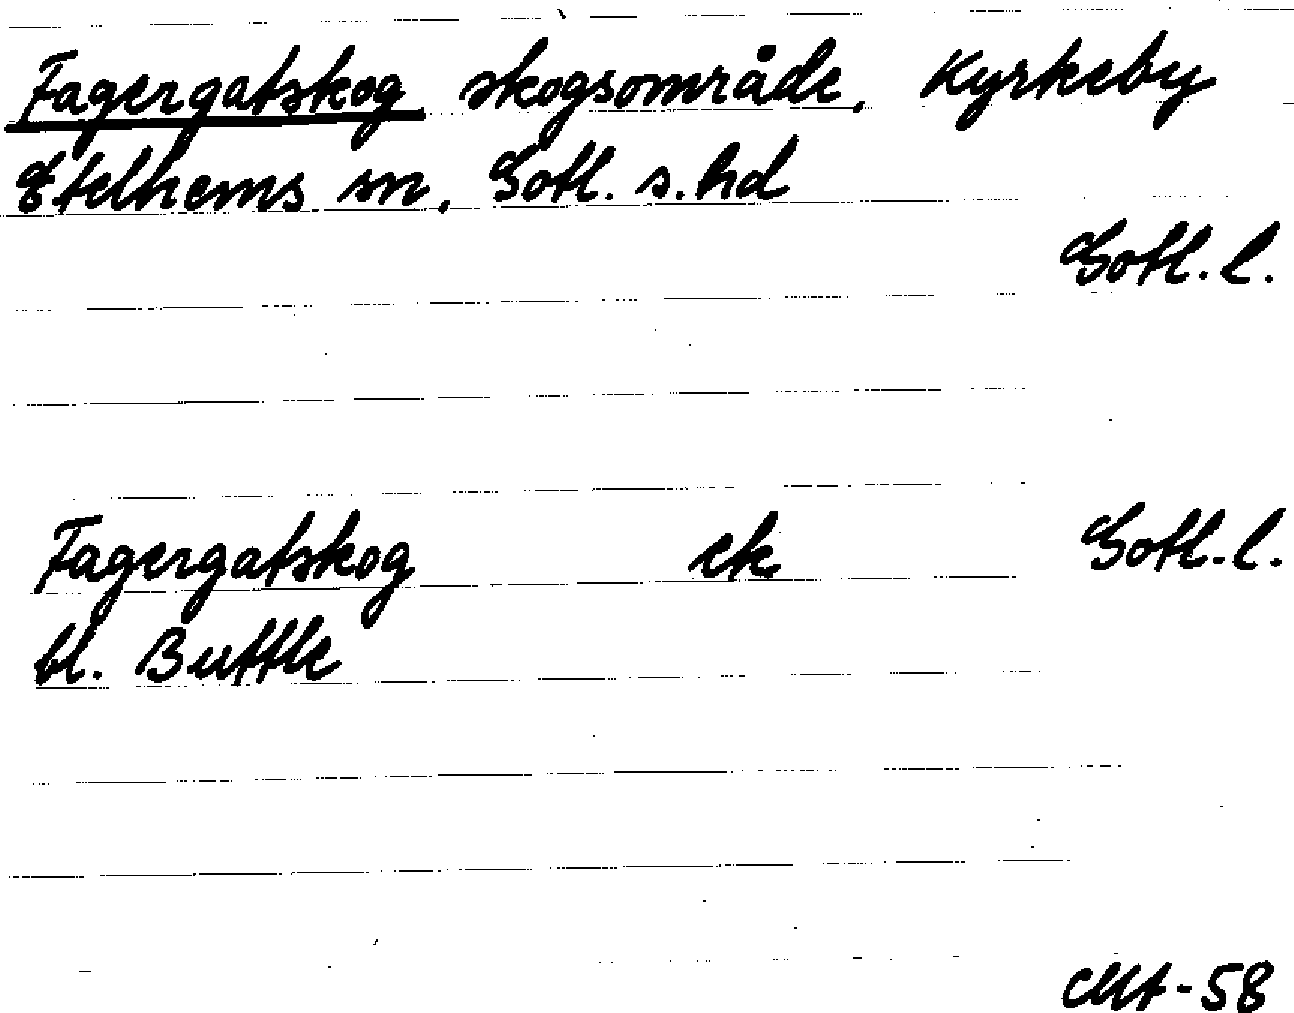 Fagergatskog skogsområde, Kyrkeby
Etelhems sn, Gotl. s. hd
Gotl. l.
Fagergatskog ek Gotl. l.
bl. Buttle
-58